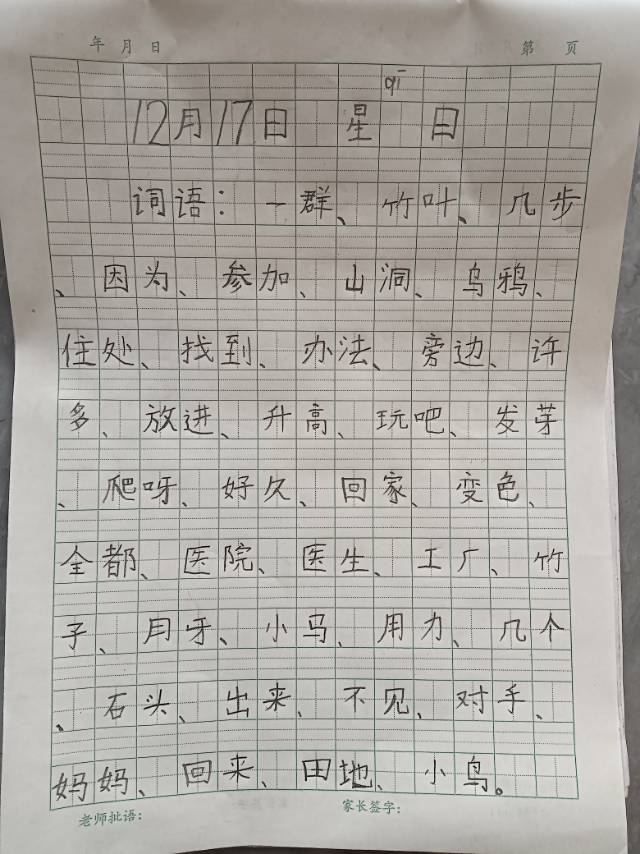 年 月 日 第 页
qī
12月17日 星 日
词语：一群、竹叶、几步
、因为、参加、山洞、乌鸦、
住处、找到、办法、旁边、许
多、放进、升高、玩吧、发芽
、爬呀、好久、回家、变色、
全都、医院、医生、工厂、竹
子、月牙、小马、用力、几个
、石头、出来、不见、对手、
妈妈、回来、田地、小鸟。
老师批语： 家长签字：